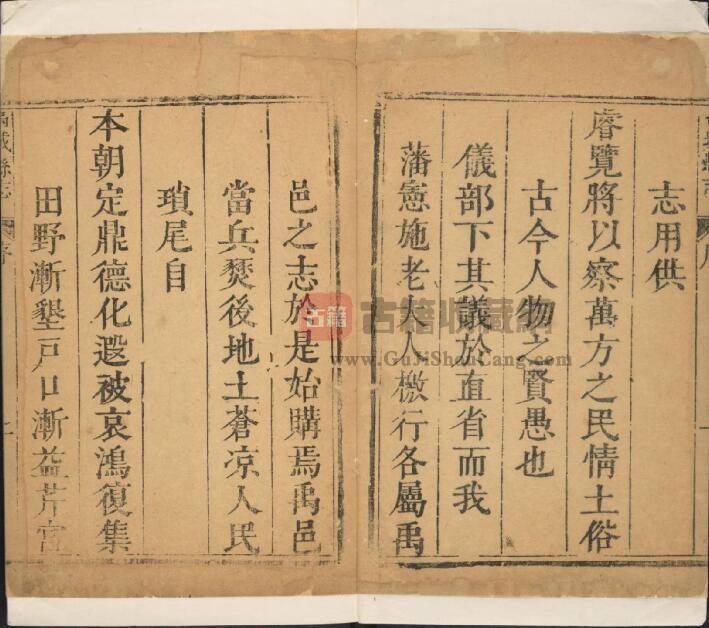 志用供
睿覽將以察萬方之民情土俗
古今人物之賢愚也
儀部下其議於直省而我
藩憲施老大人檄行各屬禹
邑之志於是始購焉禹邑
當兵燹後地土蒼凉人民
瑣尾自
本朝定鼎德化遐被哀鴻復集
田野漸墾戸口漸益芹宮
城縣志
序
古籍
古籍收藏網
www.GuJiShouCang.com